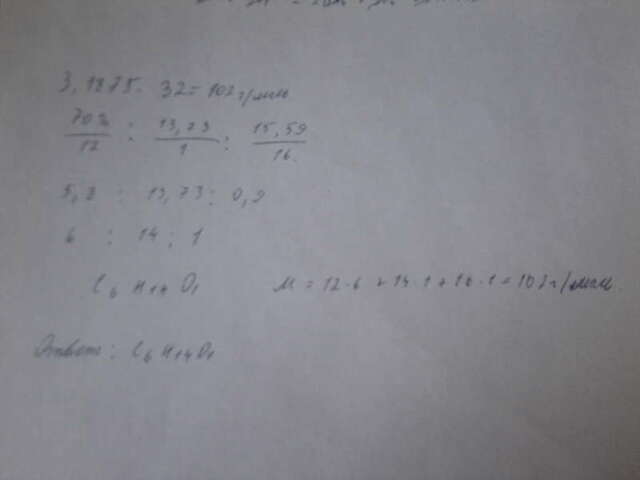 3,1875 · 32 = 102 г/моль
70% / 12 : 13,73 / 1 : 15,59 / 16
5,8 : 13,73 : 0,9
6 : 14 : 1
C6H14O1 M = 12·6 + 14·1 + 16·1 = 102 г/моль.
Ответ: C6H14O1